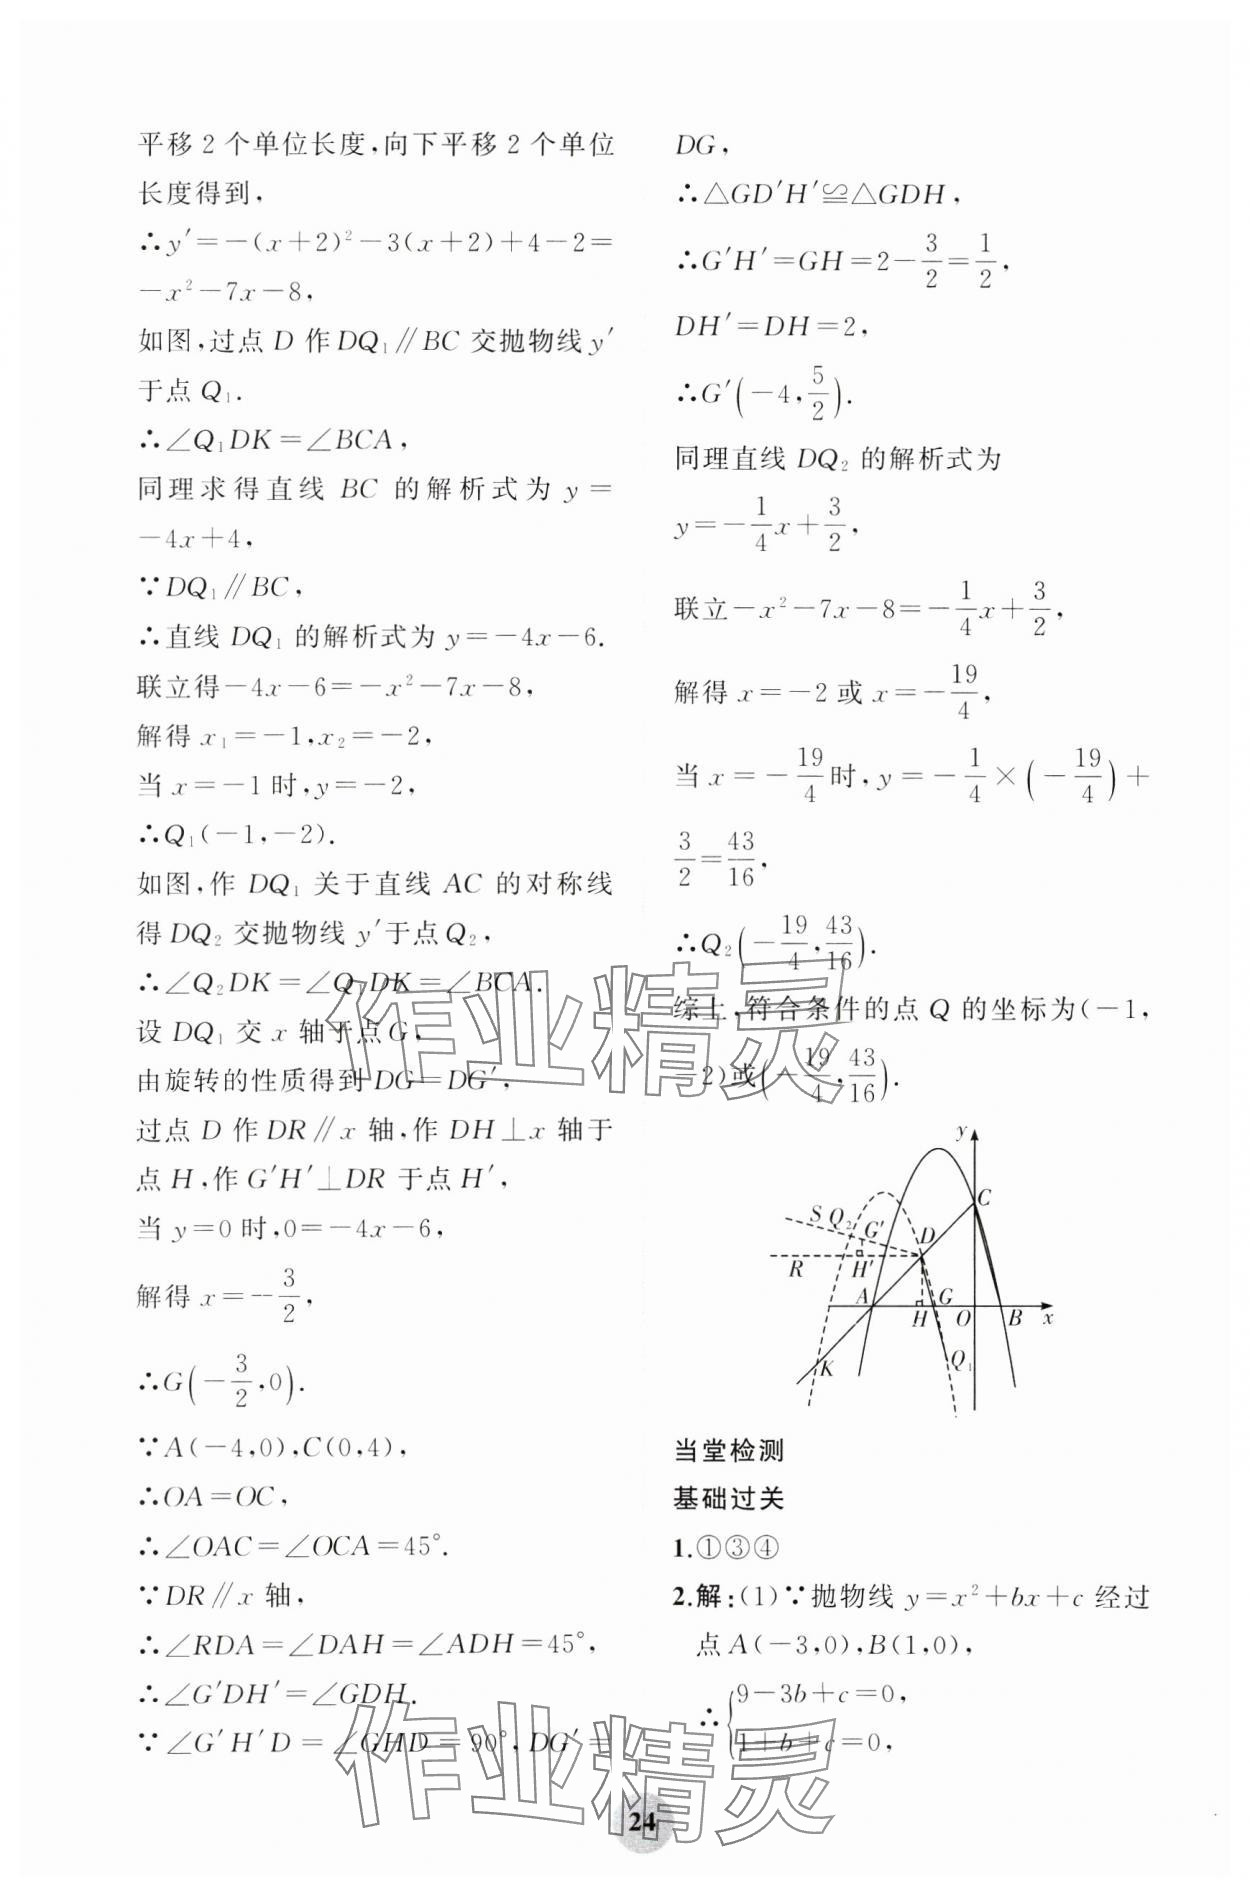 平移 2 个单位长度,向下平移 2 个单位
长度得到,
∴y′=-(x+2)²-3(x+2)+4-2=
-x²-7x-8,
如图,过点 D 作 DQ₁∥BC 交抛物线 y′
于点 Q₁.
∴∠Q₁DK=∠BCA,
同理求得直线 BC 的解析式为 y=
-4x+4,
∵DQ₁∥BC,
∴直线 DQ₁ 的解析式为 y=-4x-6.
联立得-4x-6=-x²-7x-8,
解得 x₁=-1,x₂=-2,
当 x=-1 时,y=-2,
∴Q₁(-1,-2).
如图,作 DQ₁ 关于直线 AC 的对称线
得 DQ₂ 交抛物线 y′于点 Q₂,
∴∠Q₂DK=∠Q₁DK=∠BCA.
设 DQ₁ 交 x 轴于点 G,
由旋转的性质得到 DG=DG′,
过点 D 作 DR∥x 轴,作 DH⊥x 轴于
点 H,作 G′H′⊥DR 于点 H′,
当 y=0 时,0=-4x-6,
解得 x=-3/2,
∴G(-3/2,0).
∵A(-4,0),C(0,4),
∴OA=OC,
∴∠OAC=∠OCA=45°.
∵DR∥x 轴,
∴∠RDA=∠DAH=∠ADH=45°,
∴∠G′DH′=∠GDH.
∵∠G′H′D=∠GHD=90°,DG′=
DG,
∴△GD′H′≌△GDH,
∴G′H′=GH=2-3/2=1/2,
DH′=DH=2,
∴G′(-4,5/2).
同理直线 DQ₂ 的解析式为
y=-1/4x+3/2,
联立-x²-7x-8=-1/4x+3/2,
解得 x=-2 或 x=-19/4,
当 x=-19/4时,y=-1/4×(-19/4)+
3/2=43/16,
∴Q₂(-19/4,43/16).
综上,符合条件的点 Q 的坐标为(-1,
-2)或(-19/4,43/16).
y
C
S Q₂ G′ D
R H′
A H G O B x
K Q₁
当堂检测
基础过关
1.①③④
2.解:(1)∵抛物线 y=x²+bx+c 经过
点 A(-3,0),B(1,0),
∴{9-3b+c=0,
1+b+c=0,
作业精灵
作业精灵
24